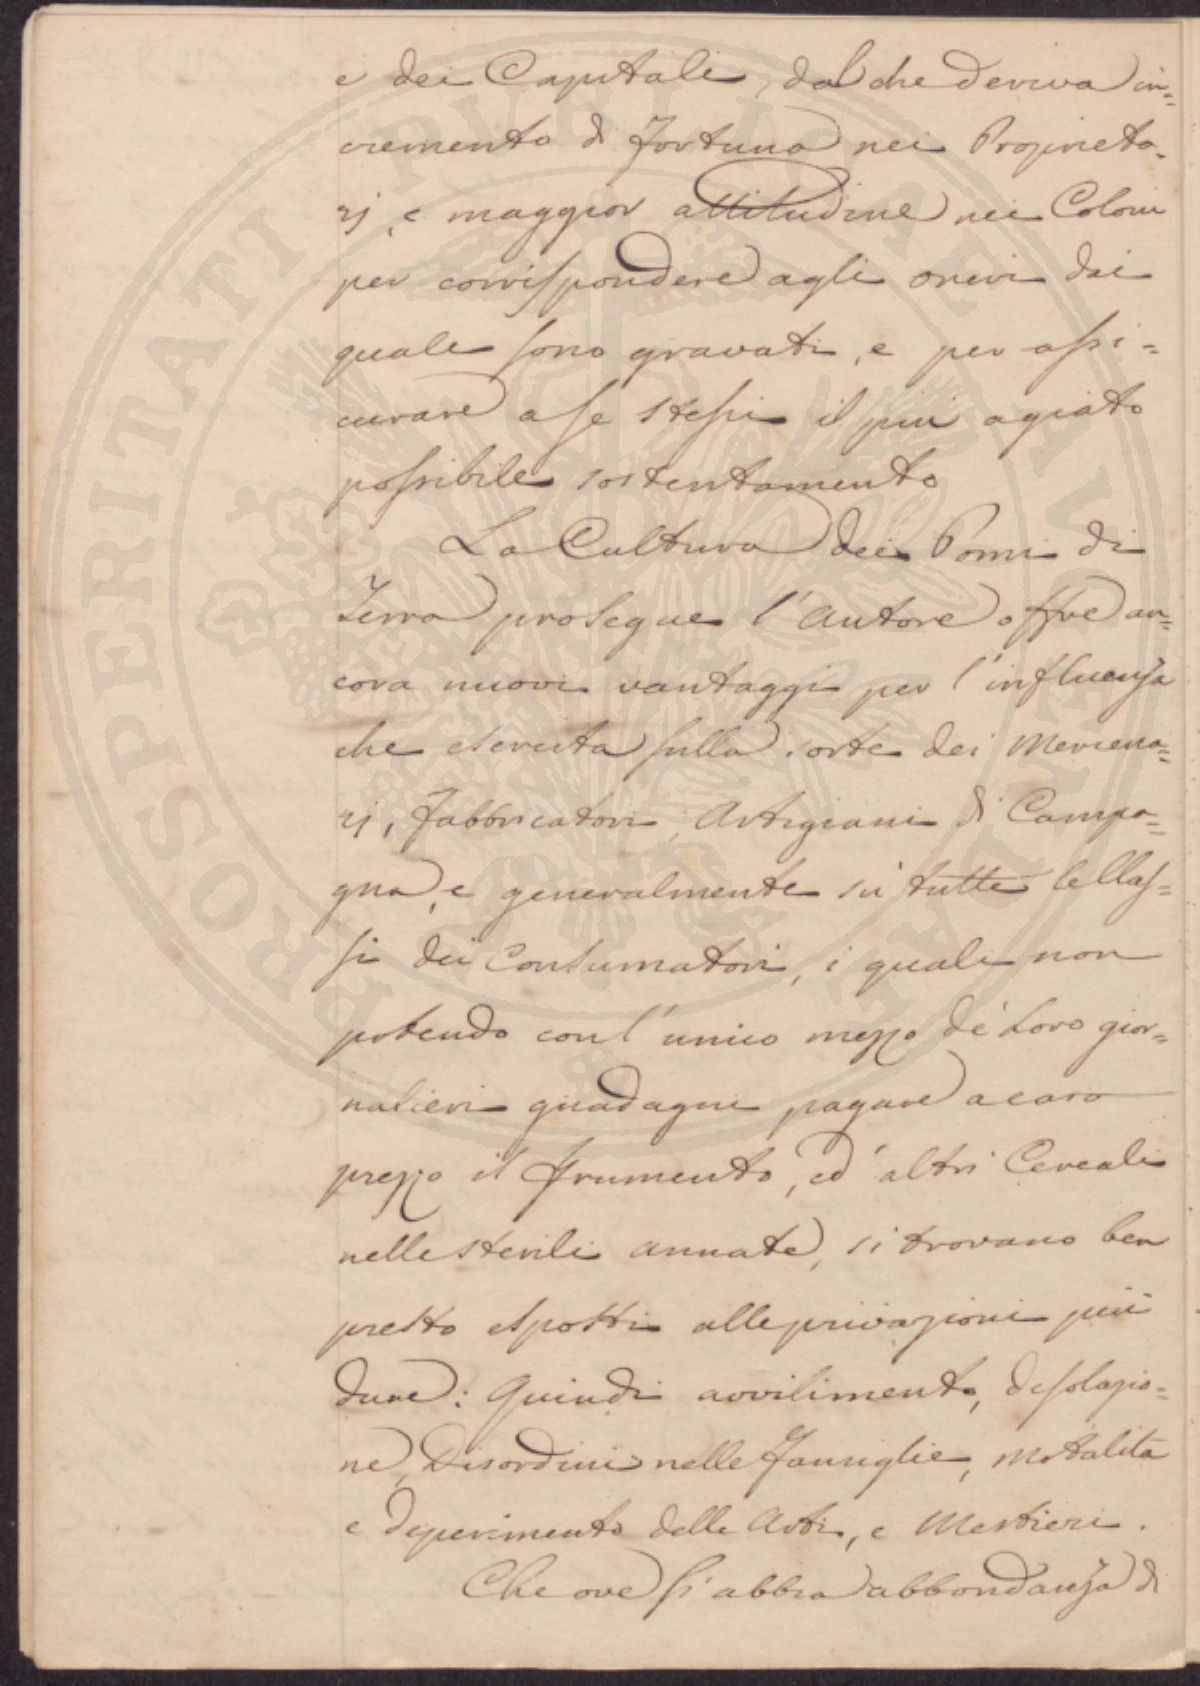 e dei Capitali, dal che deriva in=
cremento di fortuna nei Proprieta=
rj, e maggior attitudine nei Coloni
per corrispondere agli oneri dai
quale sono gravati, e per assi=
curare a se stessi il più agiato
possibile sostentamento
La Cultura dei Pomi di
Terra prosegue l'Autore offre an=
cora nuovi vantaggi per l'influenza
che esercita sulla sorte dei Mercena=
rj, fabbricatori, Artigiani di Campa=
gna, e generalmente su tutte le Clas=
si dei Consumatori, i quali non
potendo con l'unico mezzo de' loro gior=
nalieri guadagni pagare a caro
prezzo il frumento, ed altri Cereali
nelle sterili annate, si trovano ben
presto esposti alle privazioni più
dure: Quindi avvilimento, desolazio=
ne, Disordini nelle famiglie, motalità
e deperimento delle Arti, e Mestieri.
Che ove si abbia abbondanza di
PROSPERITATI PUBLICAE